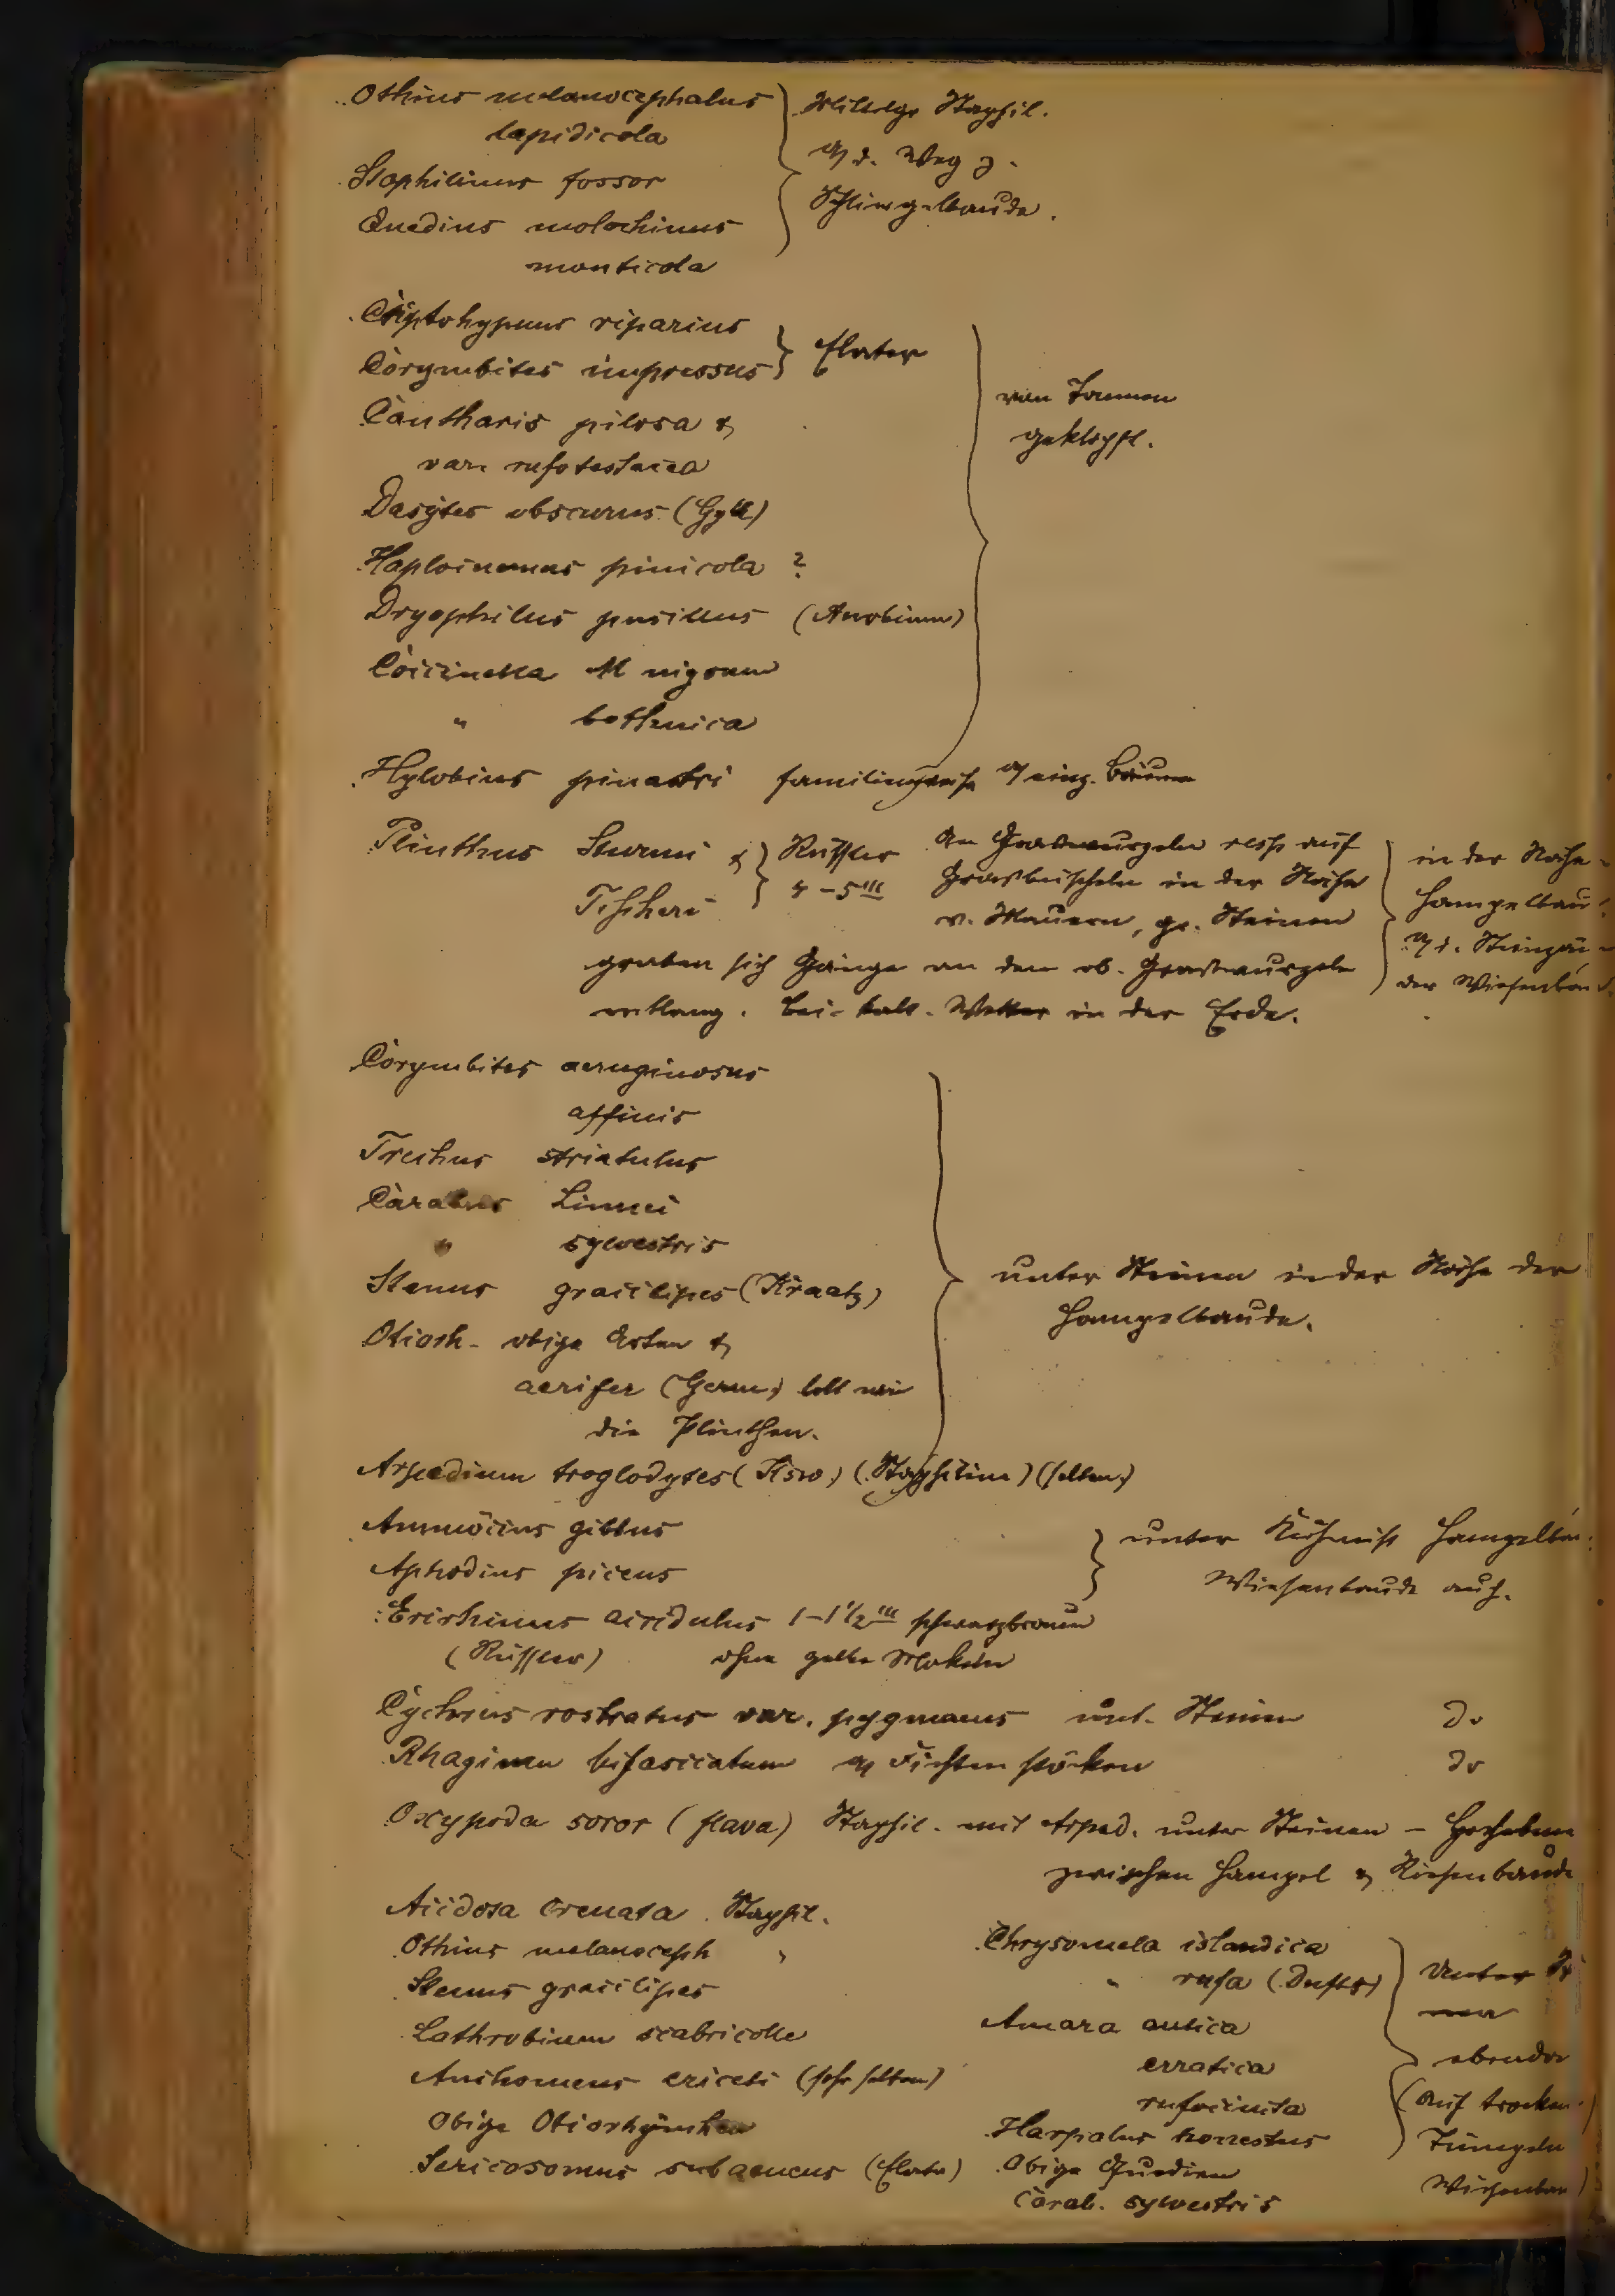 Othius melanocephalus
lapidicola
Staphilinus fossor
Quedius molochinus
monticola
Staphil.
a/ d. Weg z.
Schlingelbaude.
Cryptohypnus riparius
Corymbites impressus } Elater
Cantharis pilosa &
var. rufotestacea
Dasytes obscurus (Gyll)
Haplocnemus pinicola ?
Dryophilus pusillus (Anobium)
Coccinella M nigrum
" bothnica
von Tannen
geklopft.
Hylobius pinastri familienweise a/ einz. Bäumen
Plinthus Sturmi & } Rüssler
Tischeri 4-5'''
An Graswurzeln resp auf
Grasbüscheln in der Nähe
v. Mauern, gr. Steinen
graben sich Gänge an den ob. Graswurzeln
entlang. Bei kalt. Wetter in der Erde.
in der Nähe
Hampelbau
a/ d.
der Wiesenbau
Corymbites aeruginosus
affinis
Trechus striatulus
Carabus Linnei
" sylvestris
Stenus gracilipes (Kraatz)
Otiorh. obige Arten &
aerifer (Germ.) lebt wie
die Plinthen.
unter Steinen in der Nähe der
Hampelbaude.
Arpedium troglodytes (Ksw.) (Staphiline) (selten)
Ammöcius gibbus
Aphodius piceus
unter Kuhmist Hampelbau
Wiesenbaude auch.
Erirhinus acridulus 1-1 1/2''' schwarzbraun
(Rüssler) ohne gelbe Makeln
Cychrus rostratus var. pygmaeus unt. Steinen do
Rhagium bifasciatum a/ Fichtenstöcken do
Oxypoda soror (flava) Staphil. mit Arped. unter Steinen -
zwischen Hampel & Riesenbaude
Acidota crenata Staphil.
Othius melanoceph "
Stenus gracilipes
Lathrobium scabricolle
Anchomenus ericeti (sehr selten)
Obige Otiorhynchen
Sericosomus subaeneus (Elater)
Chrysomela islandica
" rufa (Dufts)
Amara aulica
erratica
rufocincta
Harpalus honestus
Obige Quedien
Carab. sylvestris
Unter
ebenda
(auf trocken.
Wiesenbau)